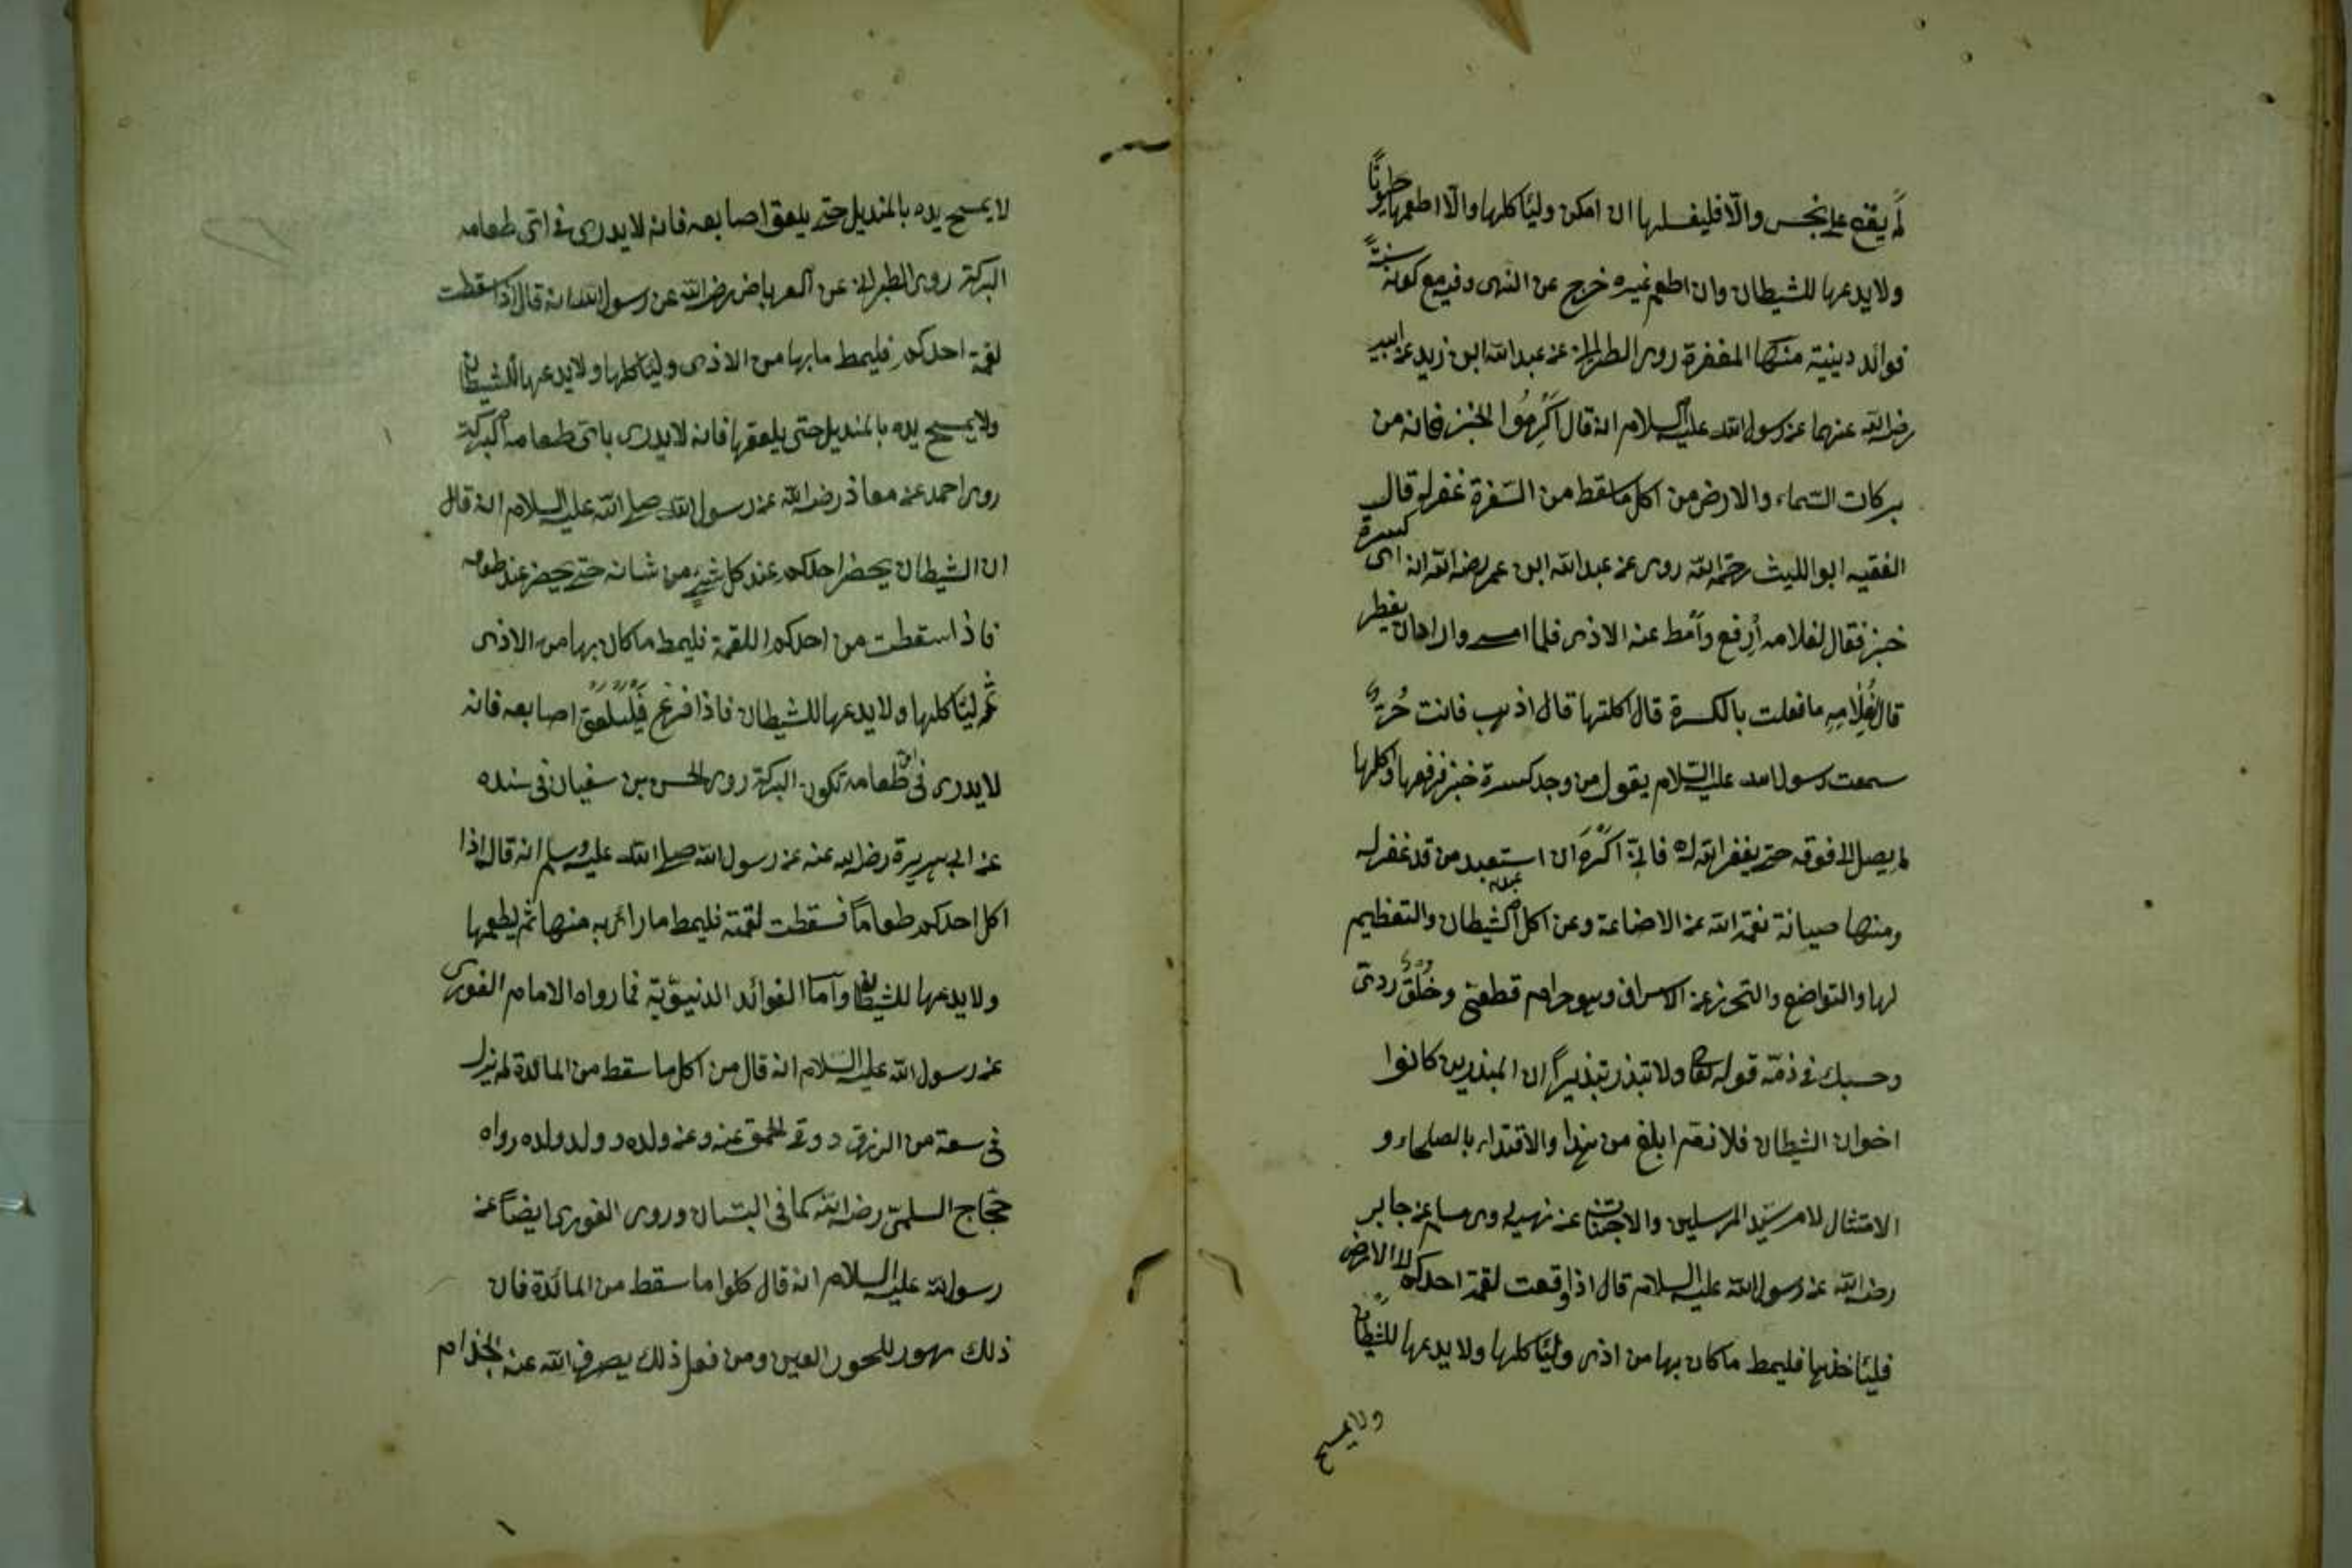 لم يقع على نجس والا فليغسلها ان امكن وليأكلها والا اطعمها حيوانًا
ولا يدعها للشيطان وان اطعم غيره خرج عن النهى وفيه مع كونه سنةً
فوائد دينية منها المغفرة روى الطبرانى عن عبد الله ابن زيد عن ابيه
رضى الله عنهما عن رسول الله عليه السلام انه قال اَكْرِمُوا الخبز فانه من
بركات السماء والارض من اكل ما سقط من السّفرة غفر له قال
الفقيه ابو الليث رحمه الله روى عن عبد الله ابن عمر رضى الله انه رأى كسرة
خبز فقال لغلامه أرفع وأمط عنه الاذى فلما امسى واراد ان يفطر
قال لغُلَامِهِ ما فعلت بالكسرة قال اكلتها قال اذهب فانت حُرٌّ
سمعت رسول الله عليه السّلام يقول من وجد كسرة خبز فرفعها واكلها
لم يصل الى فوقه حتى يغفر الله له فانى اَكْرَهُ ان استعبد من قد غفر له
ومنها صيانة نعمة الله عن الاضاعة وعن اكل الشيطان والتعظيم
لها والتواضع والتحرز عن الاسراف وهو حرام قطعىّ وخُلُقٌ ردىّ
وحسبك فى ذمّه قوله تعا ولا تبذر تبذيرًا ان المبذرين كانوا
اخوان الشيطان فلا ذم ابلغ من هذا والاقتداء بالصلحاء و
الامتثال لامر سيّد المرسلين والاجتناب عن نهيه روى مسلم عن جابر
رضى الله عن رسول الله عليه السلام قال اذا وقعت لقمة احدكم الى الارض
فليأخذها فليمط ما كان بها من اذى وليأكلها ولا يدعها للشيطان
ولا يمسح
لا يمسح يده بالمنديل حتى يلعق اصابعه فانه لا يدرى فى اىّ طعامه
البركة روى الطبرانى عن العرباض رضى الله عن رسول الله انه قال اذا سقطت
لقمة احدكم فليمط ما بها من الاذى وليأكلها ولا يدعها للشيطان
ولا يمسح يده بالمنديل حتى يلعقها فانه لا يدرى باىّ طعامه البركة
روى احمد عن معاذ رضى الله عن رسول الله صلى الله عليه السلام انه قال
ان الشيطان يحضر احدكم عند كل شىءٍ من شانه حتى يحضر عند طعامه
فاذا سقطت من احدكم اللقمة فليمط ما كان بها من الاذى
ثم ليأكلها ولا يدعها للشيطان فاذا فرغ فَلْيلعق اصابعه فانه
لا يدرى فى اىّ طعامه تكون البركة روى الحسن بن سفيان فى سنده
عن ابى هريرة رضى الله عنه عن رسول الله صلى الله عليه وسلم انه قال اذا
اكل احدكم طعامًا فسقطت لقمته فليمط ما رابه منها ثم ليطعمها
ولا يدعها للشيطان واما الفوائد الدنيويّة فما رواه الامام الغورى
عن رسول الله عليه السّلام انه قال من اكل ما سقط من المائدة لم يزل
فى سعة من الرزق ووقى الحمق عنه وعن ولده وولد ولده رواه
حجّاج السلمىّ رضى الله كما فى البستان وروى الغورى ايضًا عن
رسول الله عليه السلام انه قال كلوا ما سقط من المائدة فان
ذلك مهور للحور العين ومن فعل ذلك يصرف الله عنه الجذام